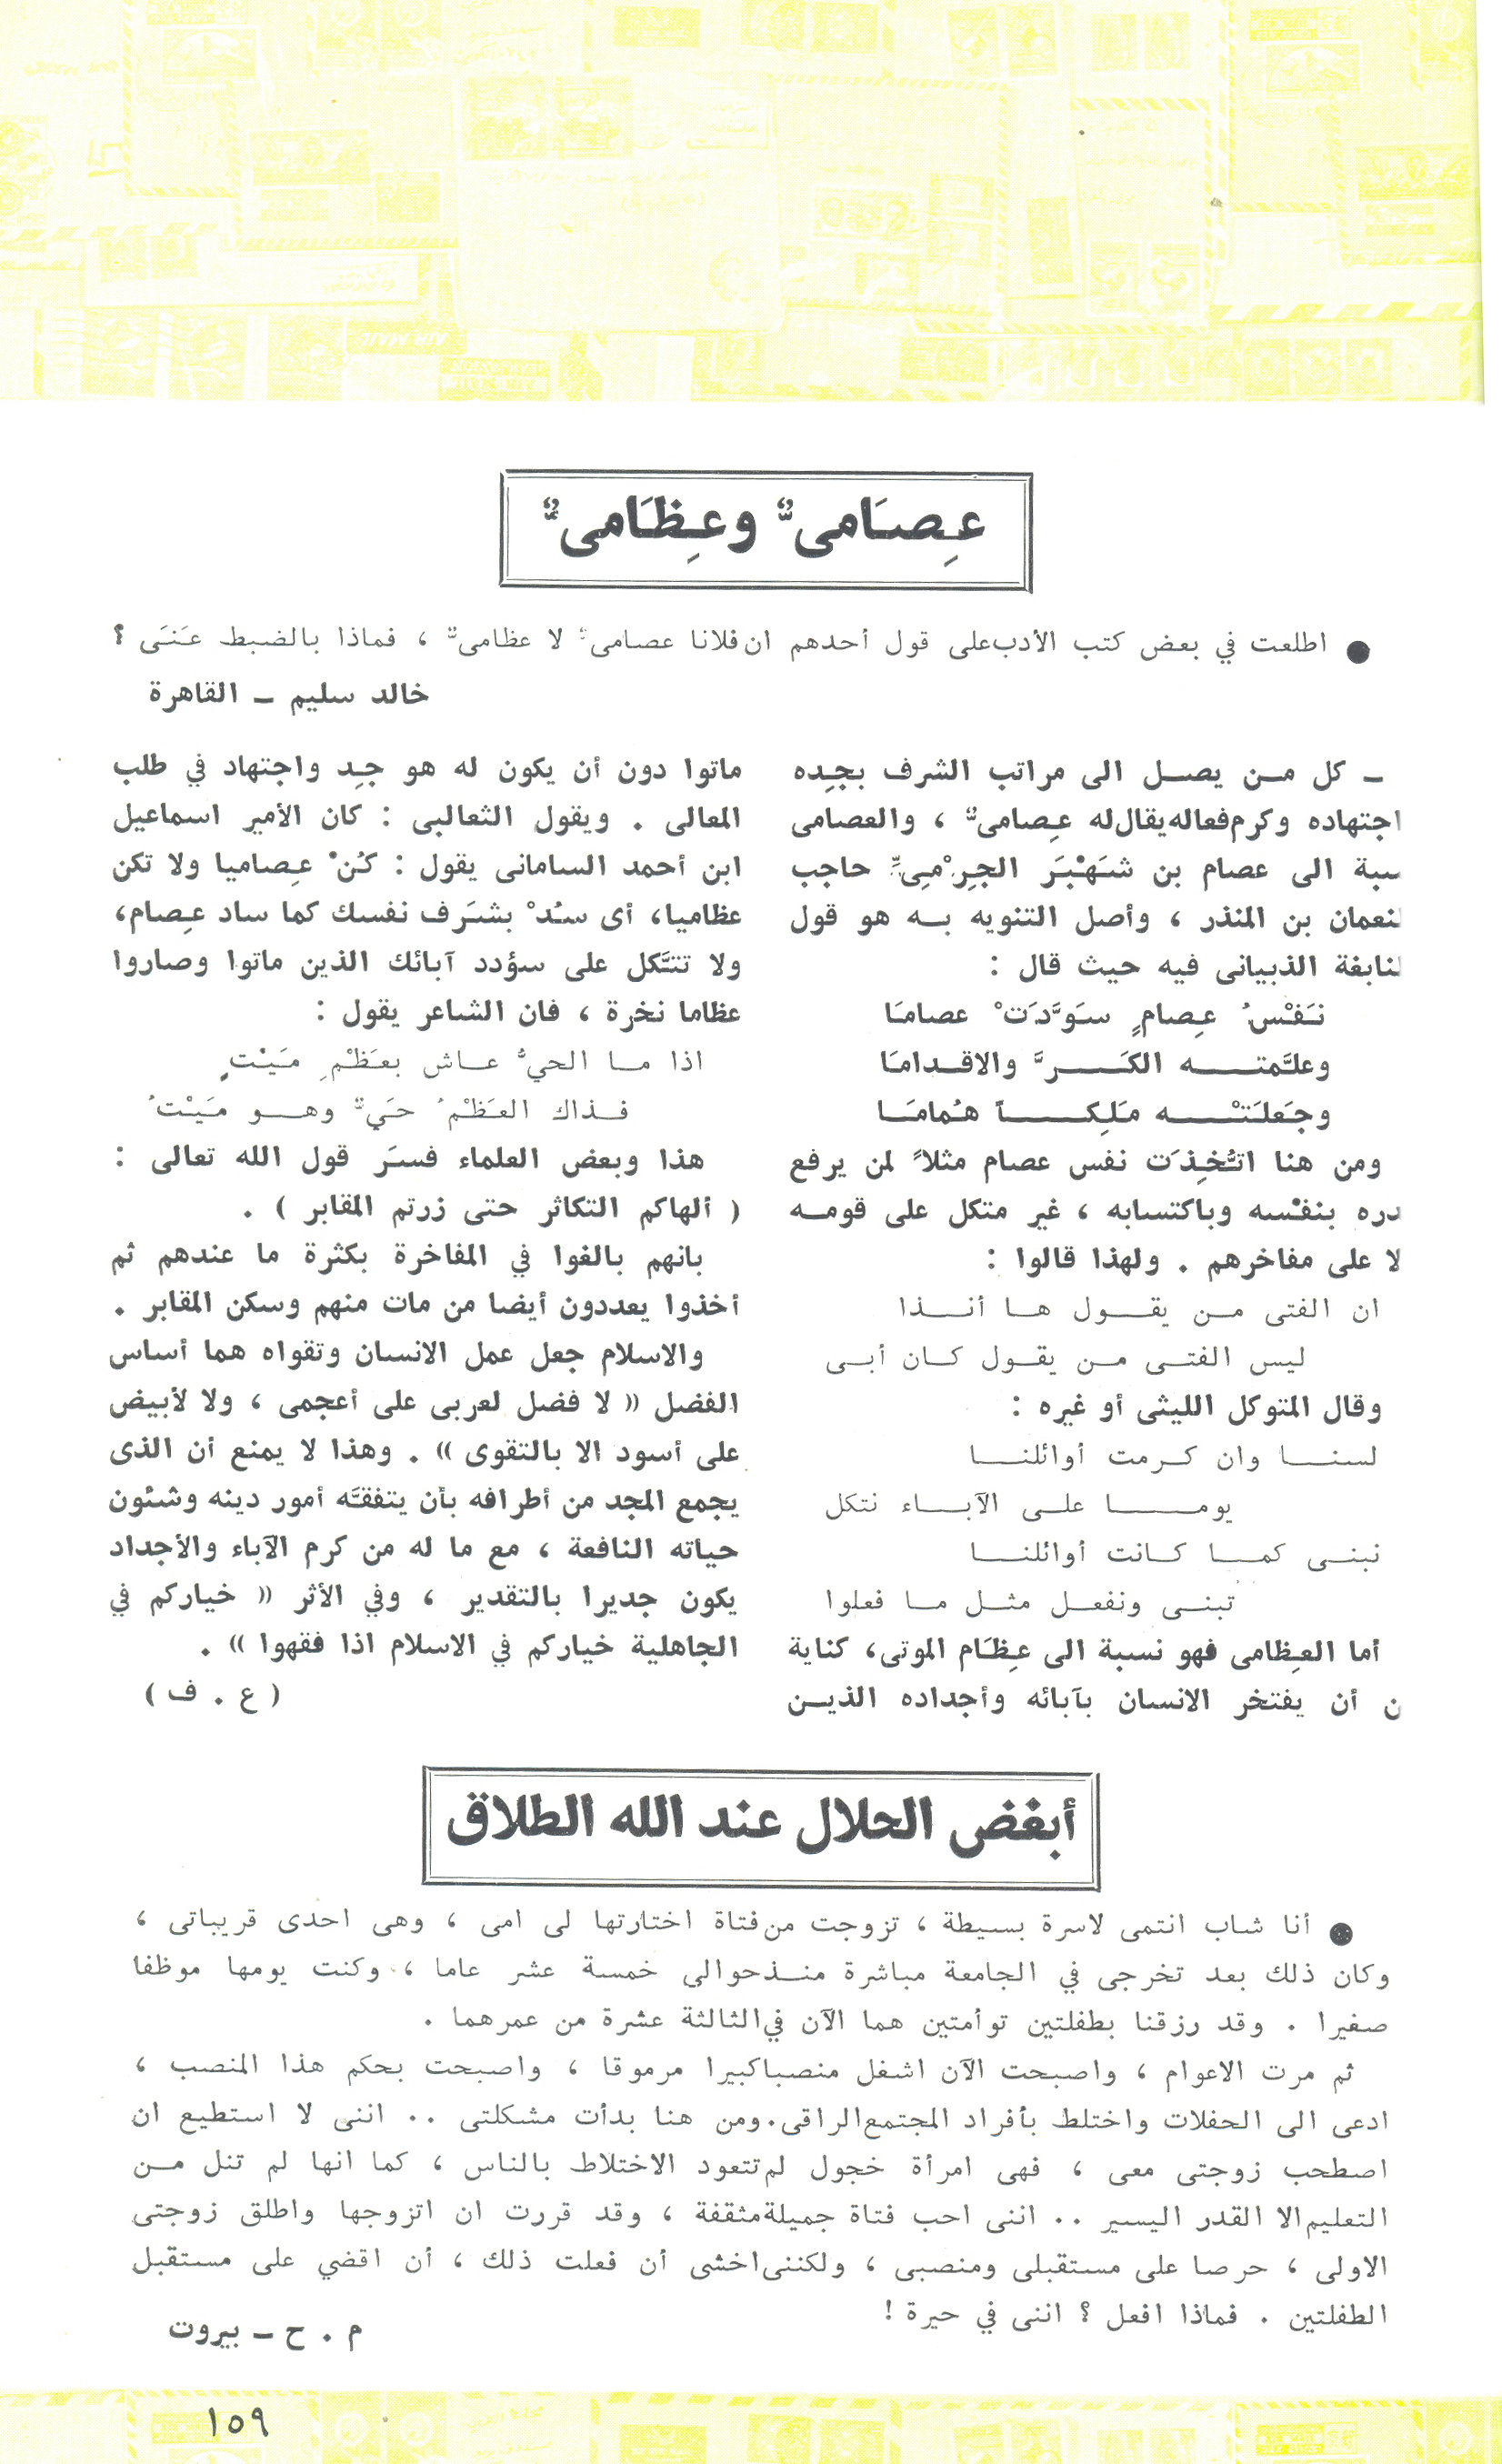 عِصَامىٌّ وعِظَامىٌّ
● اطلعت في بعض كتب الأدب على قول أحدهم ان فلانا عصامىّ لا عظامىّ ، فماذا بالضبط عَنَى ؟
خالد سليم ــ القاهرة
ــ كل مــن يصــل الى مراتب الشرف بجِده
اجتهاده وكرم فعاله يقال له عِصامىّ ، والعصامى
سبة الى عصام بن شَهْبَر الجِرْمِىِّ حاجب
لنعمان بن المنذر ، وأصل التنويه بــه هو قول
لنابغة الذبيانى فيه حيث قال :
نَفْسُ عِصامٍ سَوَّدَتْ عصامَا
وعلَّمتــــه الكَــــرَّ والاقــدامَا
وجَعلَتْــــه مَلِكــــاً هُمامَــا
ومن هنا اتُّخِذَت نفس عصام مثلاً لمن يرفع
درَه بنفْسه وباكتسابه ، غير متكل على قومــه
لا على مفاخرهم . ولهذا قالوا :
ان الفتى مــن يقــول هــا أنــذا
ليس الفتــى مــن يقــول كــان أبــى
وقال المتوكل الليثى أو غيره :
لسنــــا وان كــرمت أوائلنــــا
يومــــا علــى الآبــاء نتكل
نبنــى كمــا كــانت أوائلنــــا
تبنــى ونفعــل مثــل مــا فعلوا
أما العِظامى فهو نسبة الى عِظَام الموتى، كناية
ن أن يفتخر الانسان بآبائه وأجداده الذيــن
ماتوا دون أن يكون له هو جِد واجتهاد في طلب
المعالى . ويقول الثعالبى : كان الأمير اسماعيل
ابن أحمد السامانى يقول : كُنْ عِصاميا ولا تكن
عظاميا، أى سُدْ بشَرَف نفسك كما ساد عِصام،
ولا تتَّكل على سؤدد آبائك الذين ماتوا وصاروا
عظاما نخرة ، فان الشاعر يقول :
اذا مــا الحيُّ عــاش بعَظْمِ مَيْتٍ
فــذاك العَظْمُ حَيٌّ وهــو مَيْتُ
هذا وبعض العلماء فسَر قول الله تعالى :
( ألهاكم التكاثر حتى زرتم المقابر ) .
بانهم بالغوا في المفاخرة بكثرة ما عندهم ثم
أخذوا يعددون أيضا من مات منهم وسكن المقابر .
والاسلام جعل عمل الانسان وتقواه هما أساس
الفضل « لا فضل لعربى على أعجمى ، ولا لأبيض
على أسود الا بالتقوى » . وهذا لا يمنع أن الذى
يجمع المجد من أطرافه بأن يتفقَّه أمور دينه وشئون
حياته النافعة ، مع ما له من كرم الآباء والأجداد
يكون جديرا بالتقدير ، وفي الأثر « خياركم في
الجاهلية خياركم في الاسلام اذا فقهوا » .
( ع . ف )
أبغض الحلال عند الله الطلاق
● أنا شاب انتمى لاسرة بسيطة ، تزوجت من فتاة اختارتها لى امى ، وهى احدى قريباتى ،
وكان ذلك بعد تخرجى في الجامعة مباشرة منــذ حوالى خمسة عشر عاما ، وكنت يومها موظفا
صغيرا . وقد رزقنا بطفلتين توأمتين هما الآن في الثالثة عشرة من عمرهما .
ثم مرت الاعوام ، واصبحت الآن اشغل منصبا كبيرا مرموقا ، واصبحت بحكم هذا المنصب ،
ادعى الى الحفلات واختلط بأفراد المجتمع الراقى. ومن هنا بدأت مشكلتى .. اننى لا استطيع ان
اصطحب زوجتى معى ، فهى امرأة خجول لم تتعود الاختلاط بالناس ، كما انها لم تنل مــن
التعليم الا القدر اليسير .. اننى احب فتاة جميلة مثقفة ، وقد قررت ان اتزوجها واطلق زوجتى
الاولى ، حرصا على مستقبلى ومنصبى ، ولكننى اخشى أن فعلت ذلك ، أن اقضي على مستقبل
الطفلتين . فماذا افعل ؟ اننى في حيرة !
م . ح ــ بيروت
١٥٩